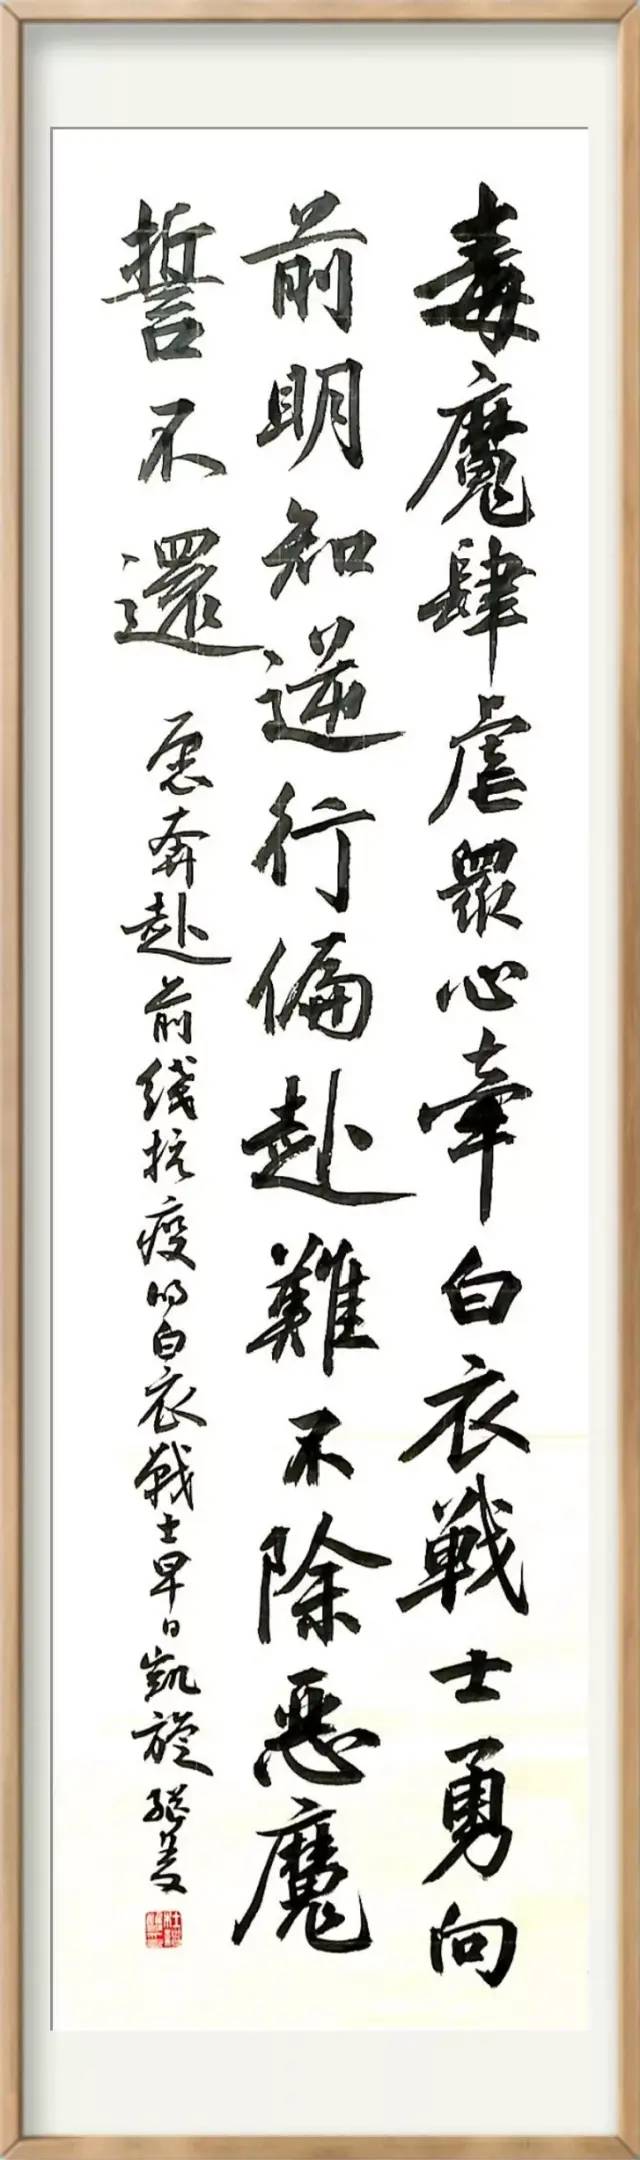 毒魔肆虐眾心牽白衣戰士勇向
前明知逆行偏赴難不除惡魔
誓不還
愿奔赴前线抗疫的白衣戰士早日凱旋